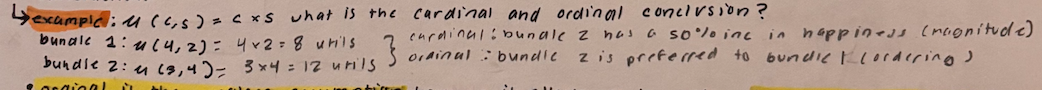 ↳example: u(c,s) = c x s what is the cardinal and ordinal conclusion?
bundle 1: u(4,2) = 4x2 = 8 utils } cardinal: bundle 2 has a 50% inc in happiness (magnitude)
bundle 2: u(3,4) = 3x4 = 12 utils } ordinal: bundle 2 is preferred to bundle 1 (ordering)